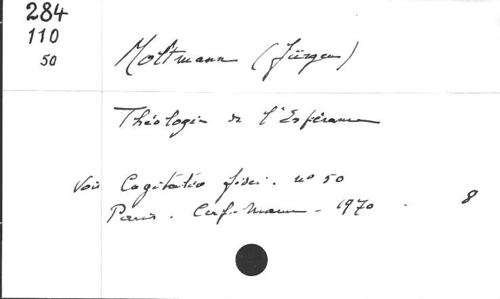 284
110
50
Moltmann (Jürgen)
Théologie de l'Espérance
Voir Cogitatio fidei. n° 50
Paris. Cerf-Mame - 1970. 8